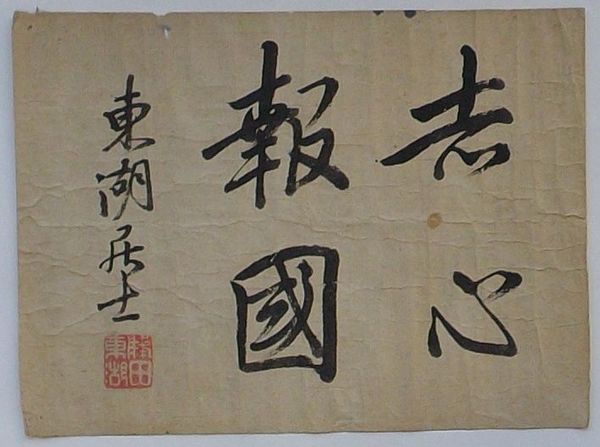 赤心
報國
東湖居士
藤田
東湖